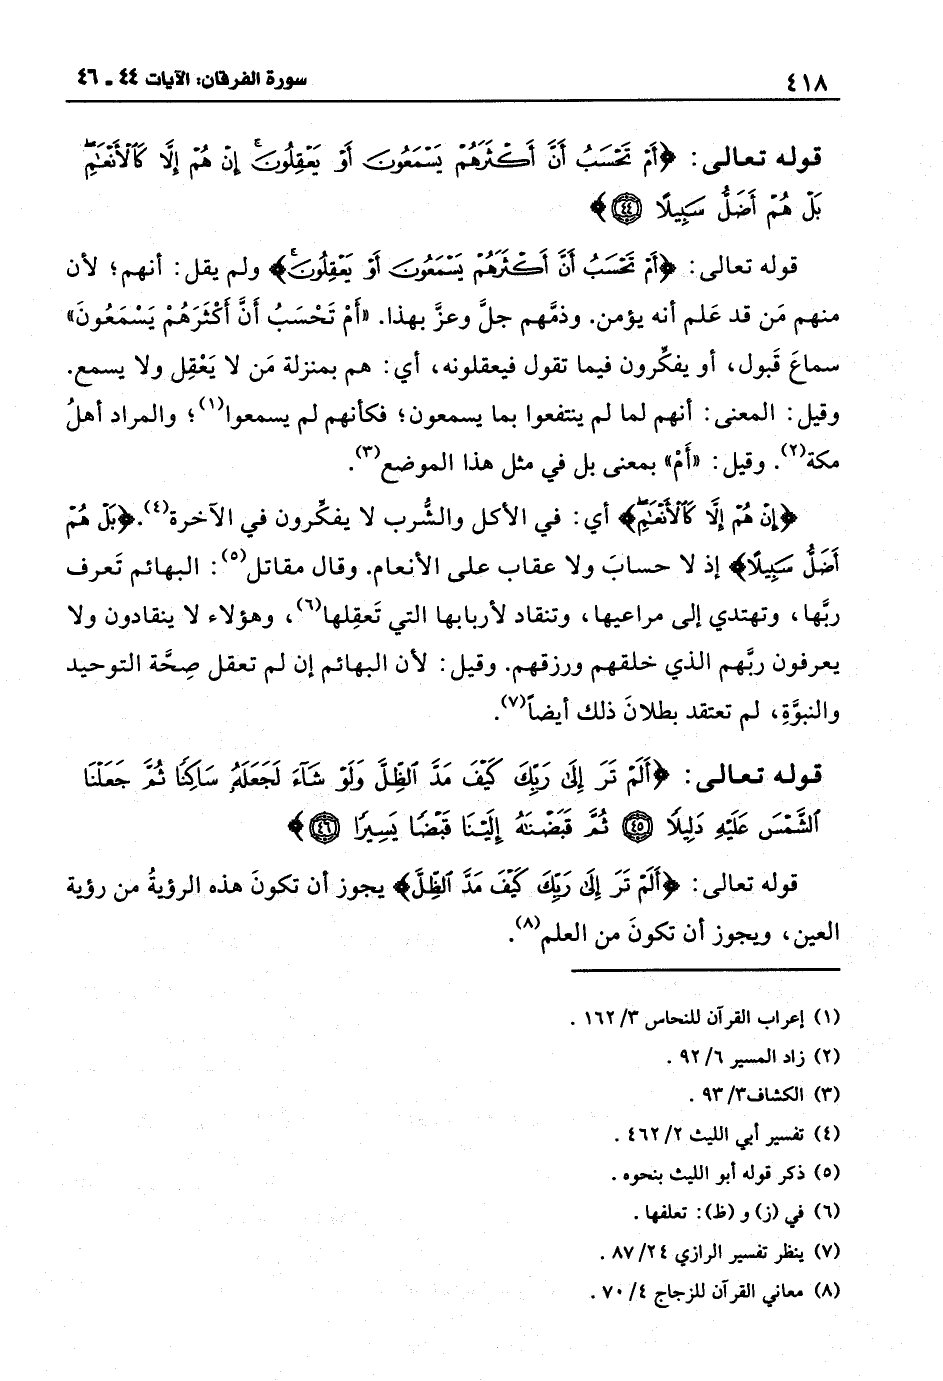 ٤١٨
سورة الفرقان: الآيات ٤٤ ـ ٤٦
قوله تعالى: ﴿أَمْ تَحْسَبُ أَنَّ أَكْثَرَهُمْ يَسْمَعُونَ أَوْ يَعْقِلُونَۚ إِنْ هُمْ إِلَّا كَالْأَنْعَٰمِۖ
بَلْ هُمْ أَضَلُّ سَبِيلًا ٤٤﴾
قوله تعالى: ﴿أَمْ تَحْسَبُ أَنَّ أَكْثَرَهُمْ يَسْمَعُونَ أَوْ يَعْقِلُونَۚ﴾ ولم يقل: أنهم؛ لأن
منهم مَن قد عَلم أنه يؤمن. وذمَّهم جلَّ وعزَّ بهذا. «أَمْ تَحْسَبُ أَنَّ أَكْثَرَهُمْ يَسْمَعُونَ»
سماعَ قَبول، أو يفكِّرون فيما تقول فيعقلونه، أي: هم بمنزلة مَن لا يَعْقِل ولا يسمع.
وقيل: المعنى: أنهم لما لم ينتفعوا بما يسمعون؛ فكأنهم لم يسمعوا(١)؛ والمراد أهلُ
مكة(٢). وقيل: «أَمْ» بمعنى بل في مثل هذا الموضع(٣).
﴿إِنْ هُمْ إِلَّا كَالْأَنْعَٰمِۖ﴾ أي: في الأكل والشُّرب لا يفكِّرون في الآخرة(٤). ﴿بَلْ هُمْ
أَضَلُّ سَبِيلًا﴾ إذ لا حسابَ ولا عقاب على الأنعام. وقال مقاتل(٥): البهائم تَعرف
ربَّها، وتهتدي إلى مراعيها، وتنقاد لأربابها التي تَعقِلها(٦)، وهؤلاء لا ينقادون ولا
يعرفون ربَّهم الذي خلقهم ورزقهم. وقيل: لأن البهائم إن لم تعقل صِحَّة التوحيد
والنبوَّةِ، لم تعتقد بطلانَ ذلك أيضاً(٧).
قوله تعالى: ﴿أَلَمْ تَرَ إِلَىٰ رَبِّكَ كَيْفَ مَدَّ الظِّلَّ وَلَوْ شَآءَ لَجَعَلَهُۥ سَاكِنًا ثُمَّ جَعَلْنَا
الشَّمْسَ عَلَيْهِ دَلِيلًا ٤٥ ثُمَّ قَبَضْنَٰهُ إِلَيْنَا قَبْضًا يَسِيرًا ٤٦﴾
قوله تعالى: ﴿أَلَمْ تَرَ إِلَىٰ رَبِّكَ كَيْفَ مَدَّ الظِّلَّ﴾ يجوز أن تكونَ هذه الرؤيةُ من رؤية
العين، ويجوز أن تكونَ من العلم(٨).
(١) إعراب القرآن للنحاس ٣/ ١٦٢ .
(٢) زاد المسير ٦/ ٩٢ .
(٣) الكشاف٣/ ٩٣ .
(٤) تفسير أبي الليث ٢/ ٤٦٢ .
(٥) ذكر قوله أبو الليث بنحوه .
(٦) في (ز) و (ظ): تعلفها .
(٧) ينظر تفسير الرازي ٢٤/ ٨٧ .
(٨) معاني القرآن للزجاج ٤/ ٧٠ .